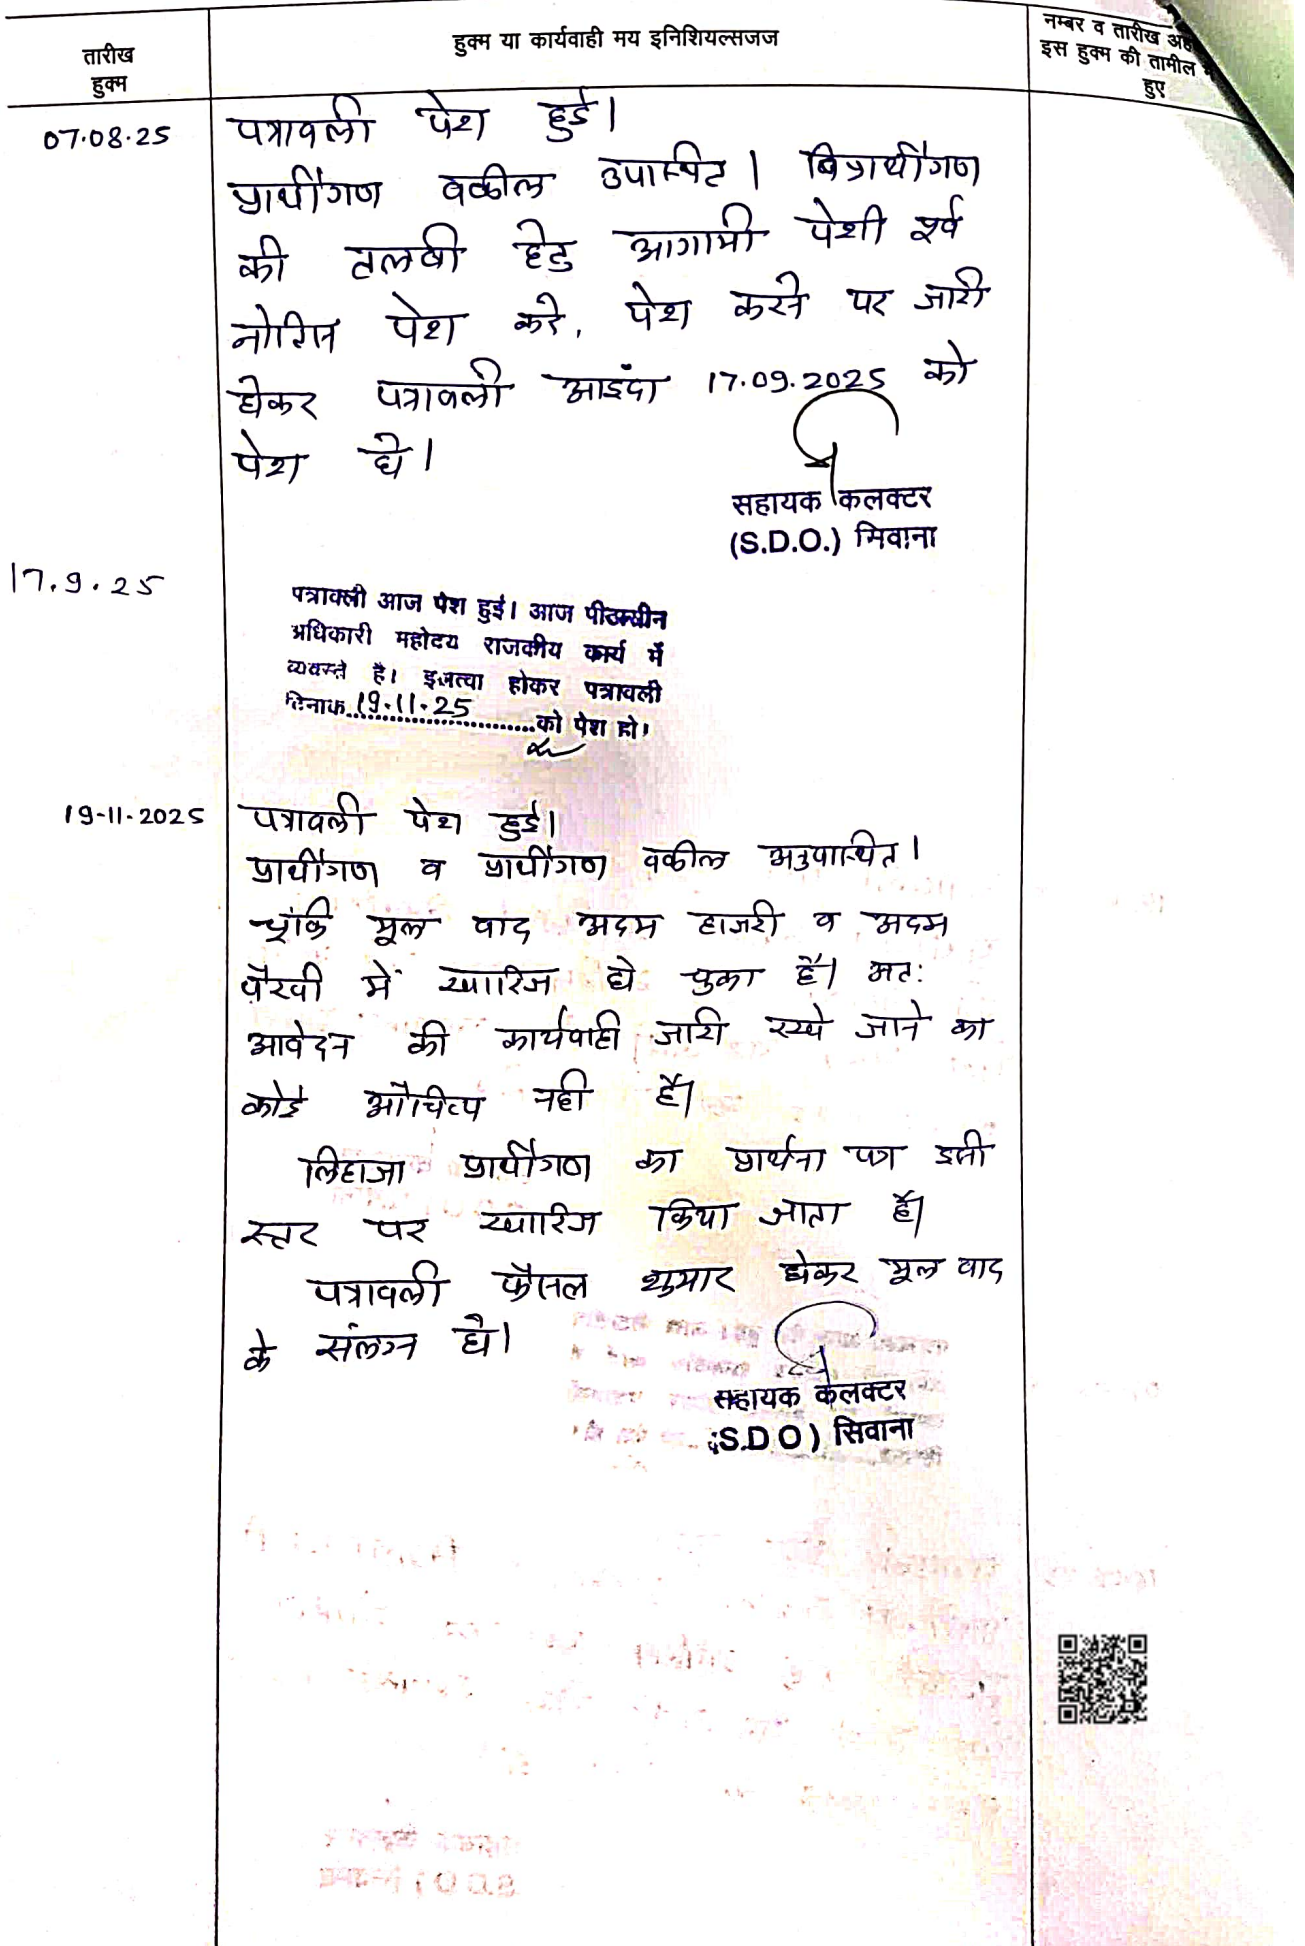 तारीख
हुक्म
हुक्म या कार्यवाही मय इनिशियल्सजज
नम्बर व तारीख
इस हुक्म की तामील
हुए
07.08.25
पत्रावली पेश हुई।
प्रार्थीगण वकील उपस्थित। विप्रार्थीगण
की तलबी हेतु आगामी पेशी पूर्व
नोटिस पेश करे, पेश करने पर जारी
होकर पत्रावली आइंदा 17.09.2025 को
पेश हो।
सहायक कलक्टर
(S.D.O.) सिवाना
17.9.25
पत्रावली आज पेश हुई। आज पीठासीन
अधिकारी महोदय राजकीय कार्य में
व्यवस्त है। इजत्वा होकर पत्रावली
दिनांक 19.11.25 को पेश हो।
19-11-2025
पत्रावली पेश हुई।
प्रार्थीगण व प्रार्थीगण वकील अनुपस्थित।
चूंकि मूल वाद अदम हाजरी व अदम
पैरवी में खारिज हो चुका है। अत:
आवेदन की कार्यवाही जारी रखे जाने का
कोई औचित्य नही है।
लिहाजा प्रार्थीगण का प्रार्थना पत्र इसी
स्तर पर खारिज किया जाता है।
पत्रावली फैसल शुमार होकर मूल वाद
के संलग्न हो।
सहायक कलक्टर
(S.D.O) सिवाना